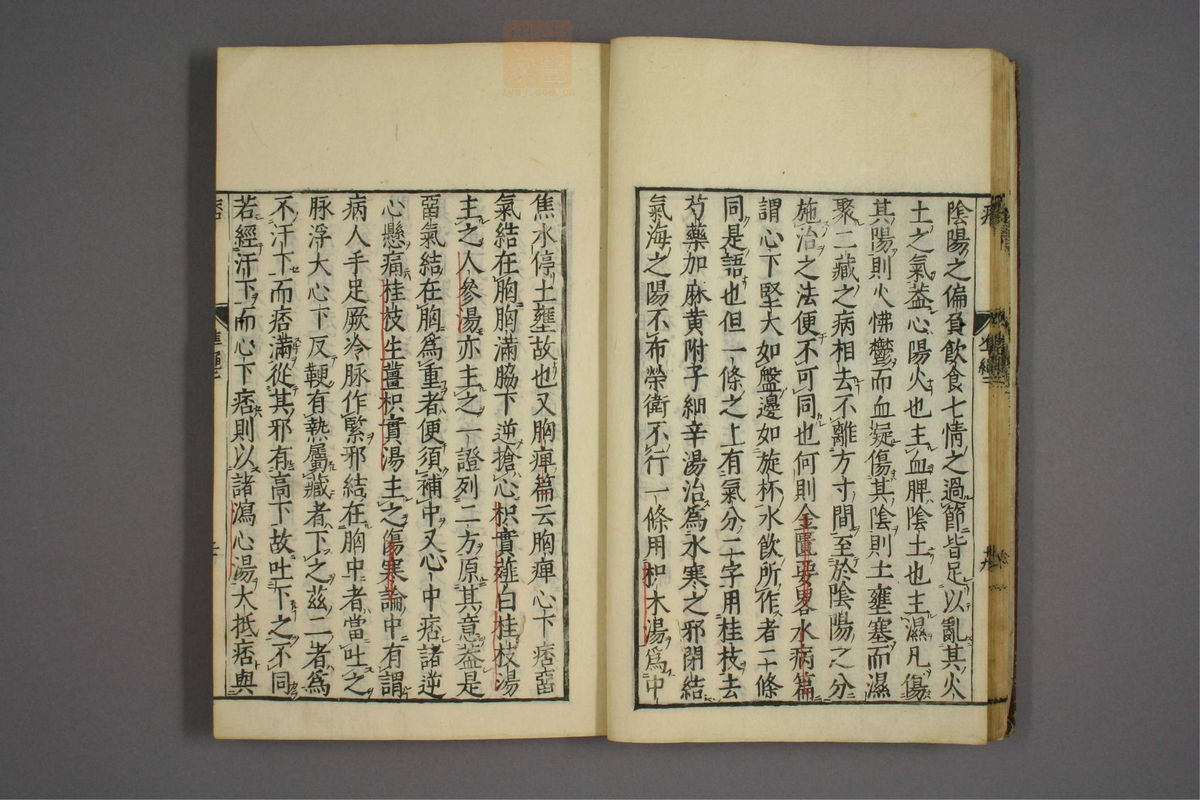 陰陽之偏負飲食七情之過節皆足以亂其火
土之氣蓋心陽火也主血脾陰土也主濕凡傷
其陽則火怫鬱而血凝傷其陰則土壅塞而濕
聚二藏之病相去不離方寸間至於陰陽之分
施治之法便不可同也何則金匱要畧水病篇
謂心下堅大如盤邊如旋杯水飲所作者二條
同是語也但一條之上有氣分二字用桂枝去
芍藥加麻黃附子細辛湯治為水寒之邪閉結
氣海之陽不布榮衛不行一條用枳朮湯為中
焦水停土壅故也又胸痺篇云胸痺心下痞留
氣結在胸胸滿脇下逆搶心枳實薤白桂枝湯
主之人參湯亦主之一證列二方原其意蓋是
留氣結在胸為重者便須補中又心中痞諸逆
心懸痛桂枝生薑枳實湯主之傷寒論中有謂
病人手足厥冷脉作緊邪結在胸中者當吐之
脉浮大心下反鞕有熱屬藏者下之茲二者為
不汗下而痞滿從其邪有高下故吐下之不同
若經汗下而心下痞則以諸瀉心湯大抵痞與